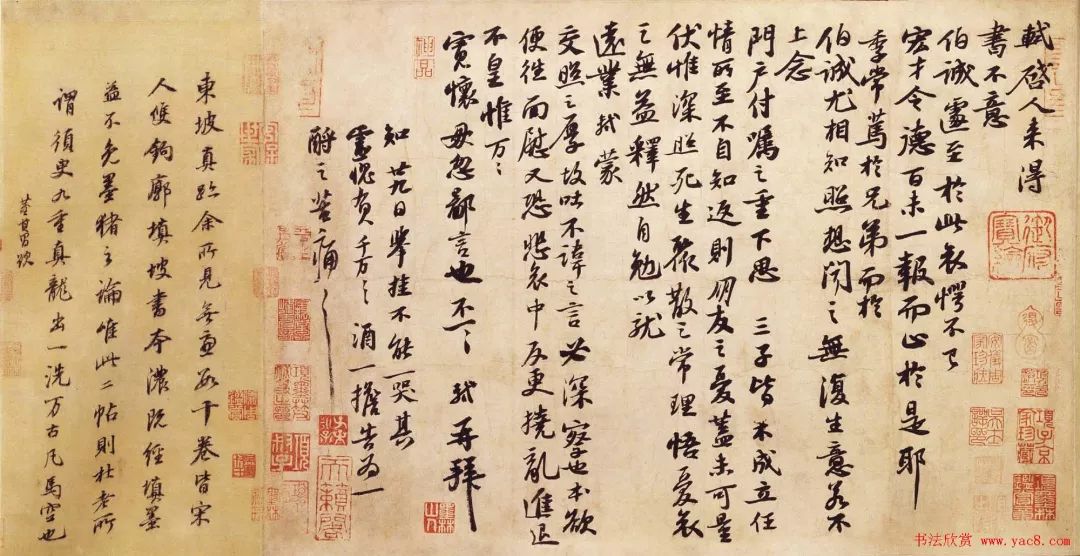 軾啓人来得
書不意
伯誠遽至於此哀愕不已
宏才令德百未一報而止於是耶
季常篤於兄弟而於
伯誠尤相知照想聞之無復生意若不
上念
門户付囑之重下思三子皆未成立任
情所至不自知返則朋友之憂蓋未可量
伏惟深照死生聚散之常理悟憂哀
之無益釋然自勉以就
遠業軾蒙
交照之厚故吐不諱之言必深察也本欲
便往面慰又恐悲哀中反更撓亂進退
不皇惟万万
寬懷毋忽鄙言也不一一軾再拜
知廿九日舉挂不能一哭其
靈愧負千万千万酒一擔告為一
酹之苦痛苦痛
神品
東坡真跡余所見無慮數十卷皆宋
人雙鉤廓填坡書本濃既經填墨
益不免墨猪之論唯此二帖則杜老所
謂須臾九重真龍出一洗万古凡馬空也
董其昌跋
御府寶繪
项子京家珍藏
书法欣赏
www.yac8.com